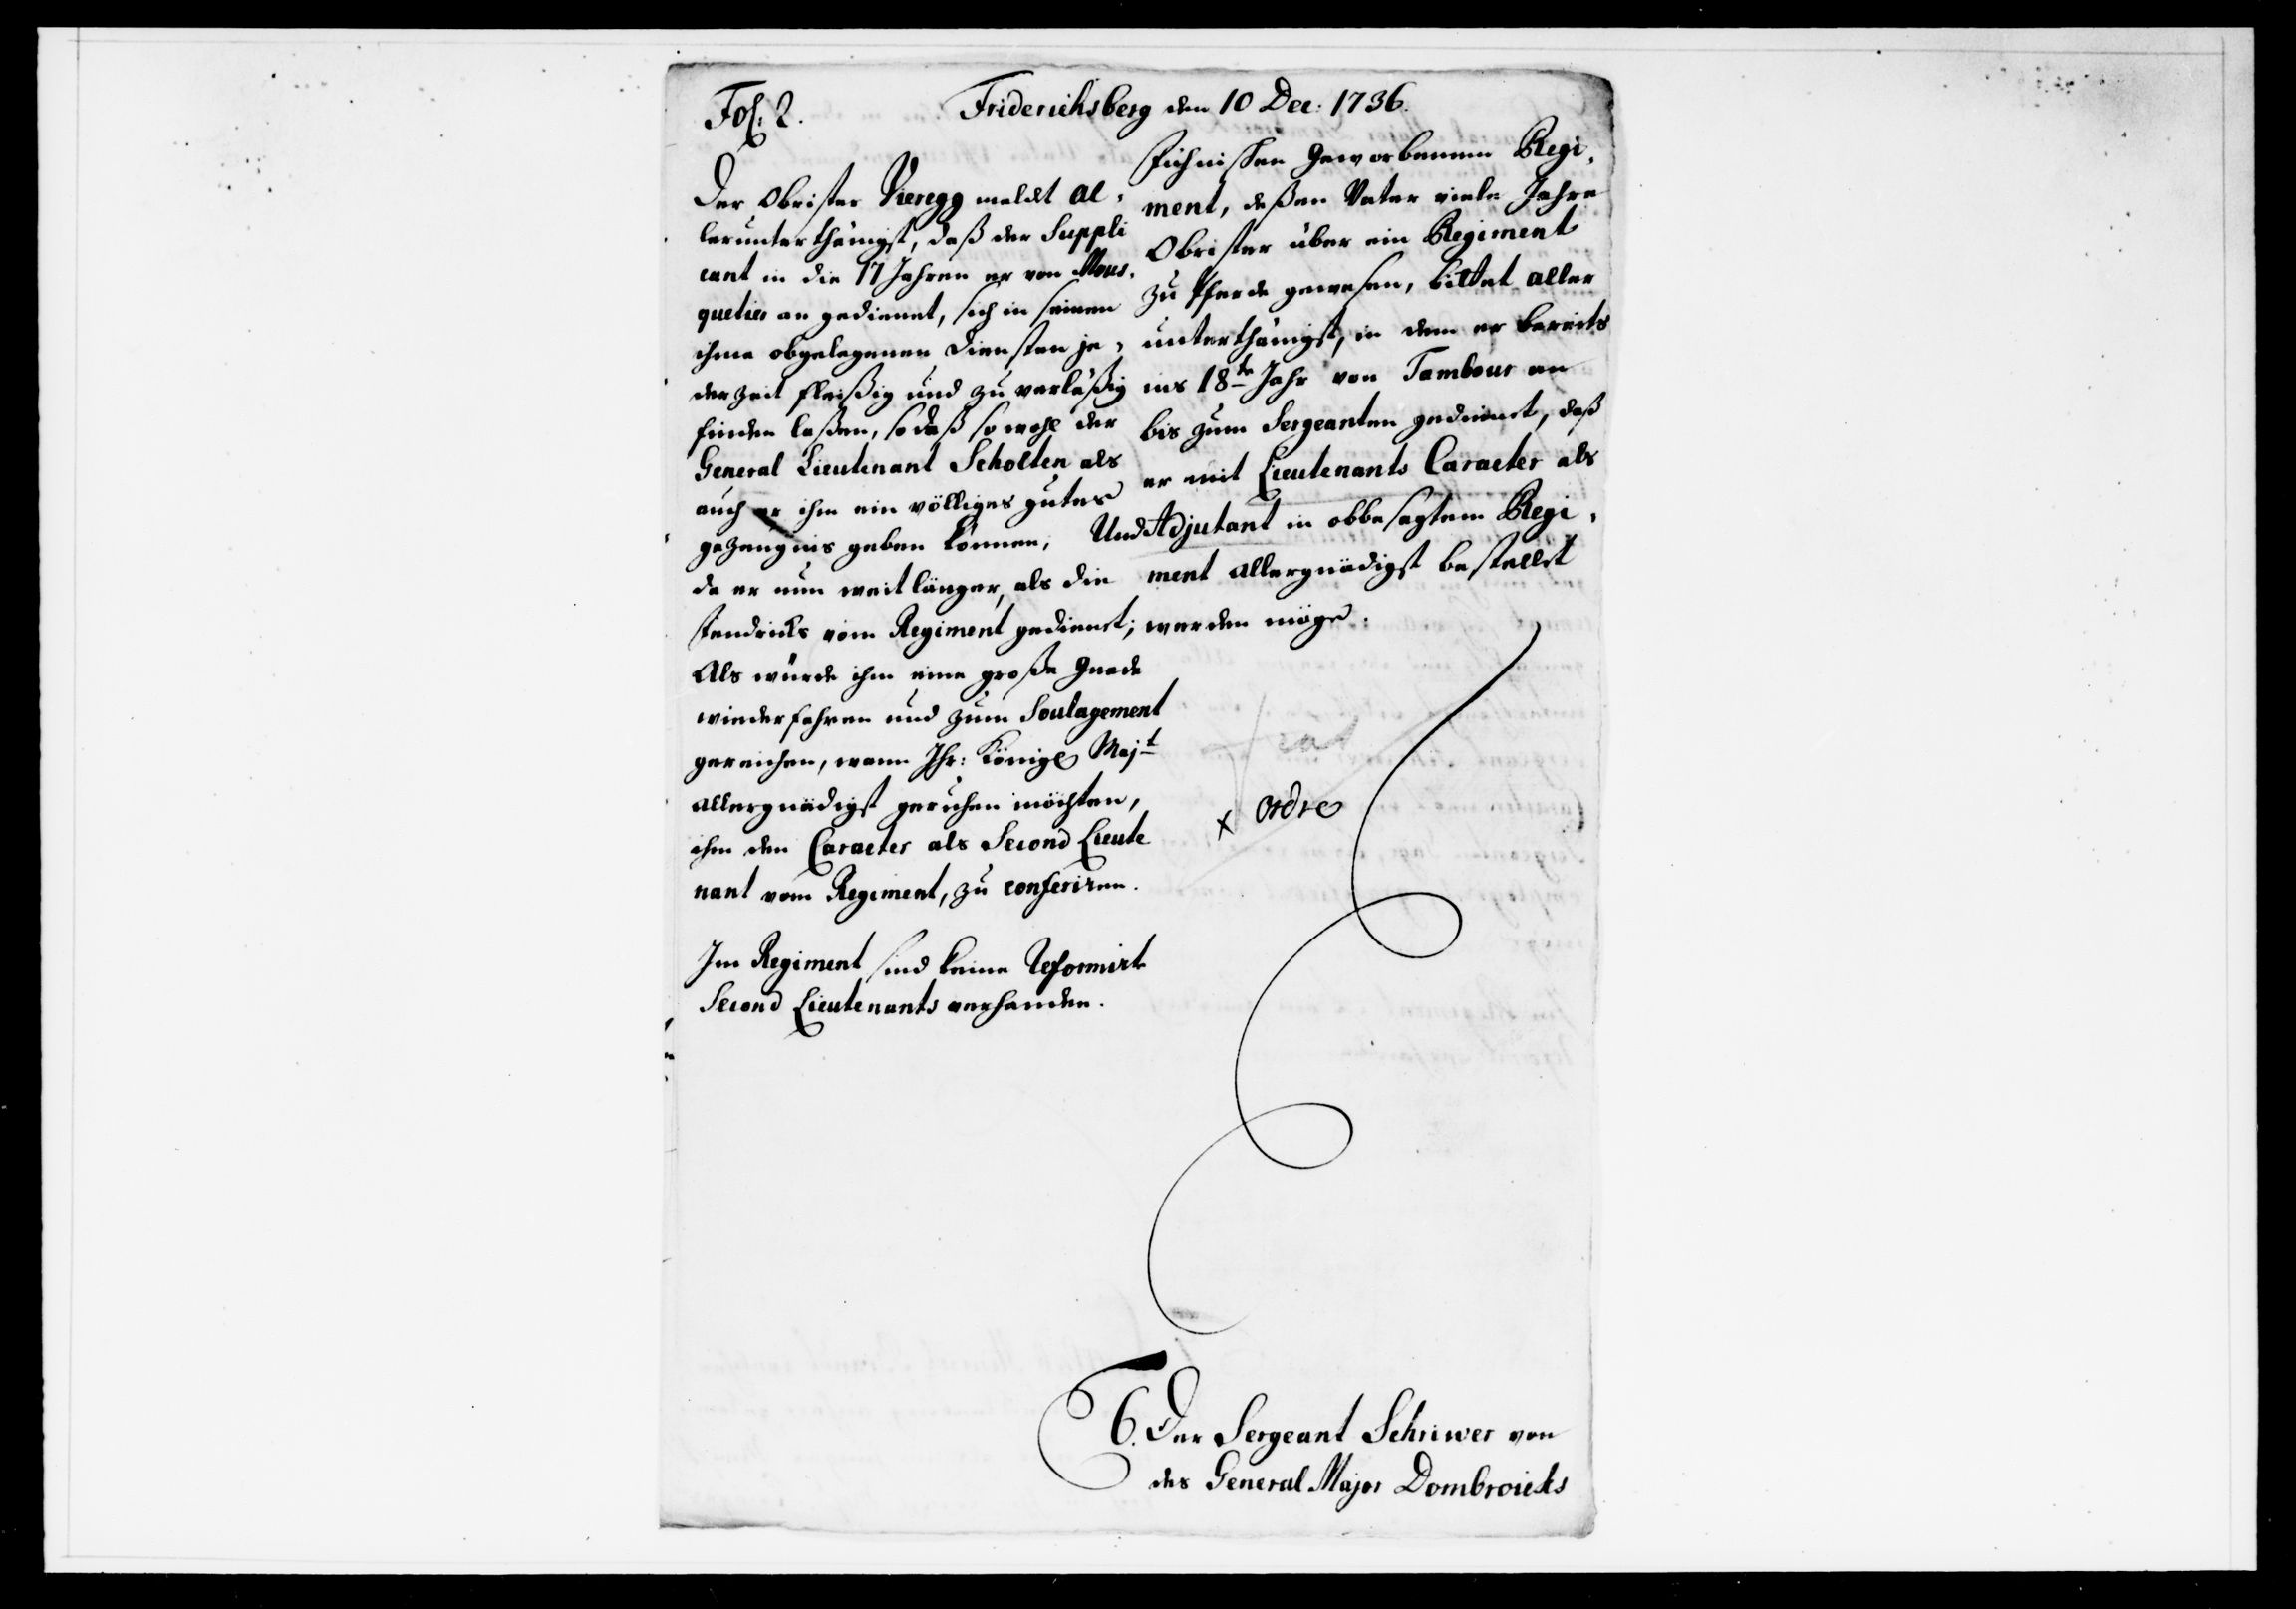 Fol: 2.
Friderichsberg den 10 Dec: 1736.
Der Obrister Vieregg meldt al-
lerunterthänigst, daß der Suppli
cant in die 17 Jahren er von Mous-
quetier an gedienet, sich in seinen
ihme obgelegenen Diensten je-
derzeit fleißig und zuverläßig
finden laßen, so daß so wohl der
General Lieutenant Scholten als
auch er ihm ein völliges gutes
gezeugnis geben können, Und
da er nun weit länger, als die
fendricks vom Regiment gedienet;
Als würde ihm eine große Gnade
wiederfahren und zum Soulagement
gereichen, wann Ihr: Königl Majt
allergnädigst geruhen möchten,
ihm den Caracter als Second Lieute
nant vom Regiment, zu conferiren.
Im Regiment sind keine Reformirte
Second Lieutenants verhanden.
Fühnischen Geworbenem Regi-
ment, deßen Vater viele Jahre
Obrister über ein Regiment
zu Pferde gewesen, bittet aller
unterthänigst, in dem er bereits
ins 18te Jahr von Tambour an
bis zum Sergeanten gedienet, daß
er mit Lieutenants Caracter als
Adjutant in obbesagtem Regi-
ment allergnädigst bestellet
werden möge.
fiat
x Ordre
6. Der Sergeant Schriwer von
des General Major Dombroicks